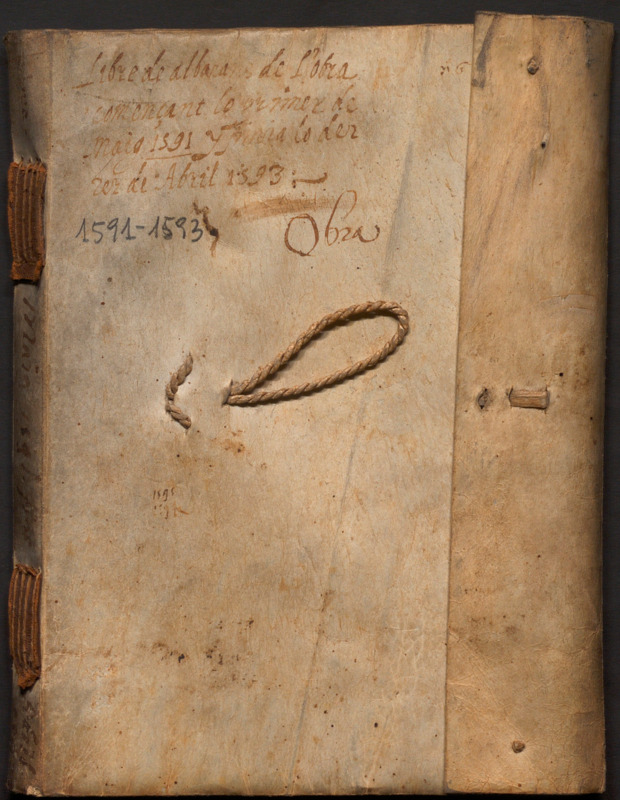 Libre de albarans de l'obra
començant lo primer de
Maig 1591 y finira lo der
rer de Abril 1593
1591-1593
Obra
1591